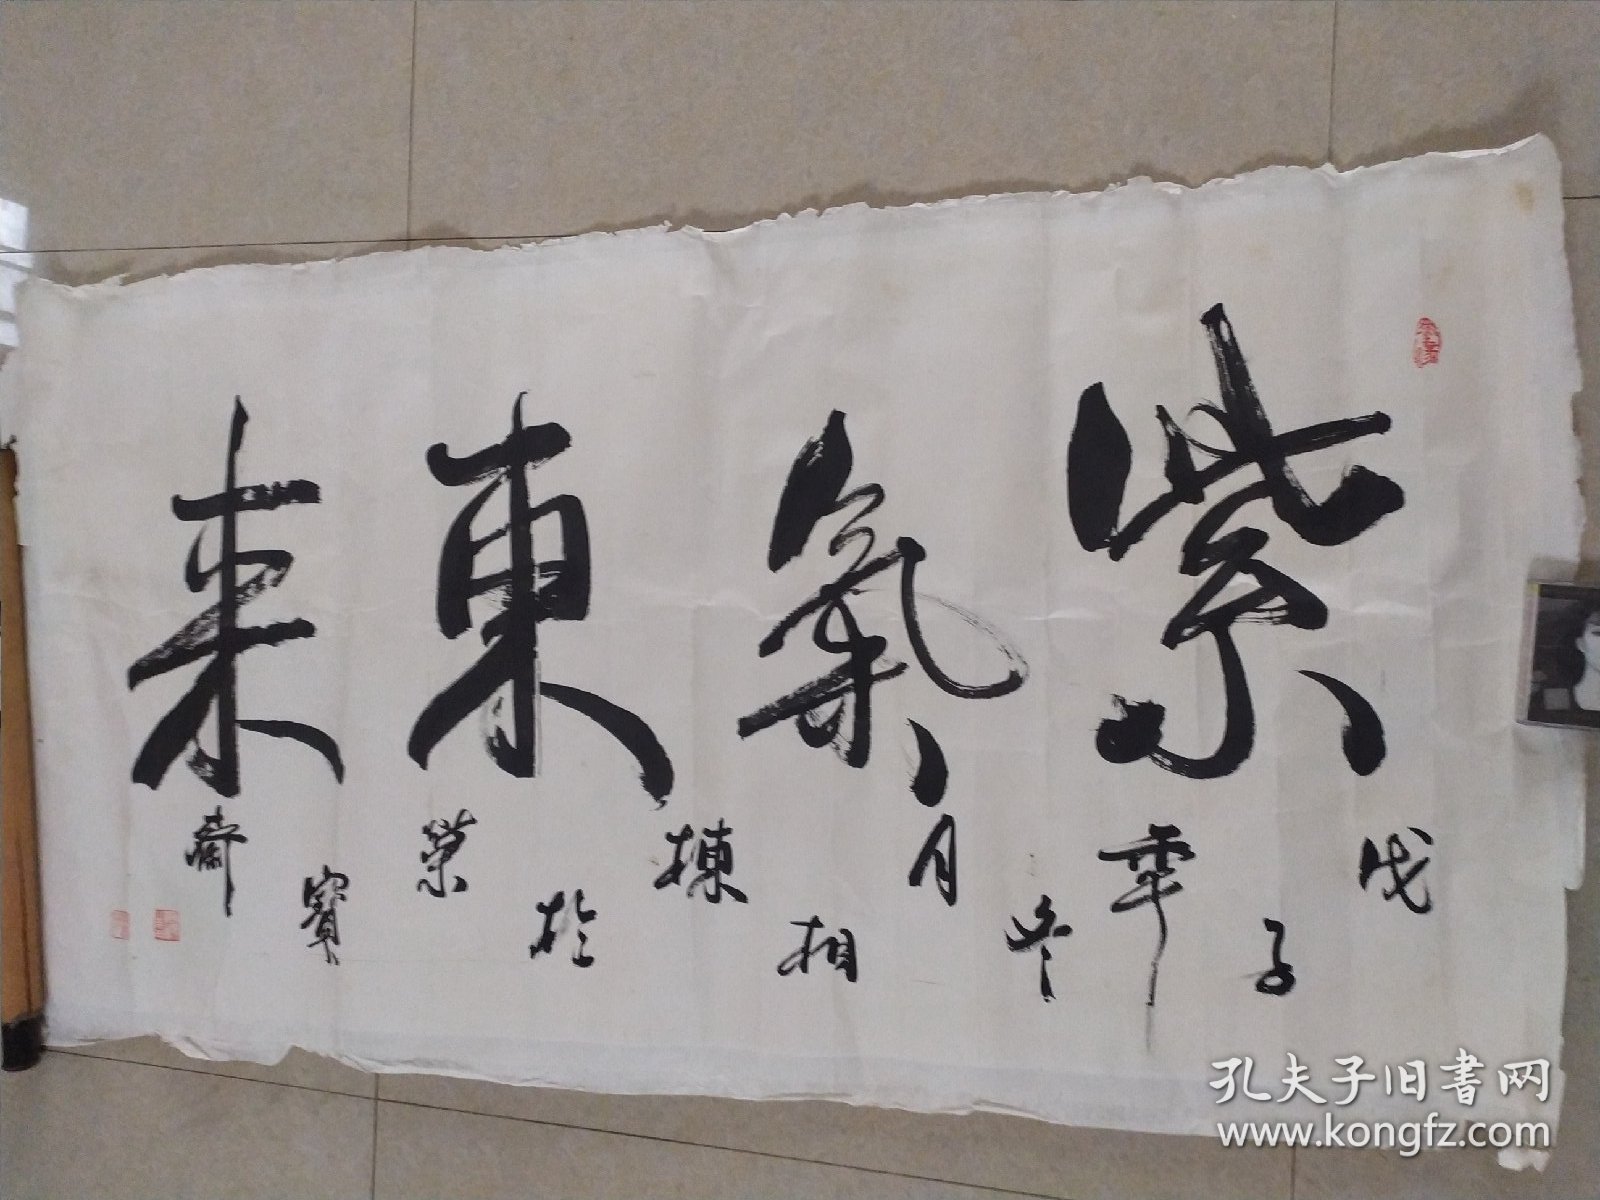 紫氣東来
戊子年冬月相棟於榮寶齋
孔夫子旧书网
www.kongfz.com